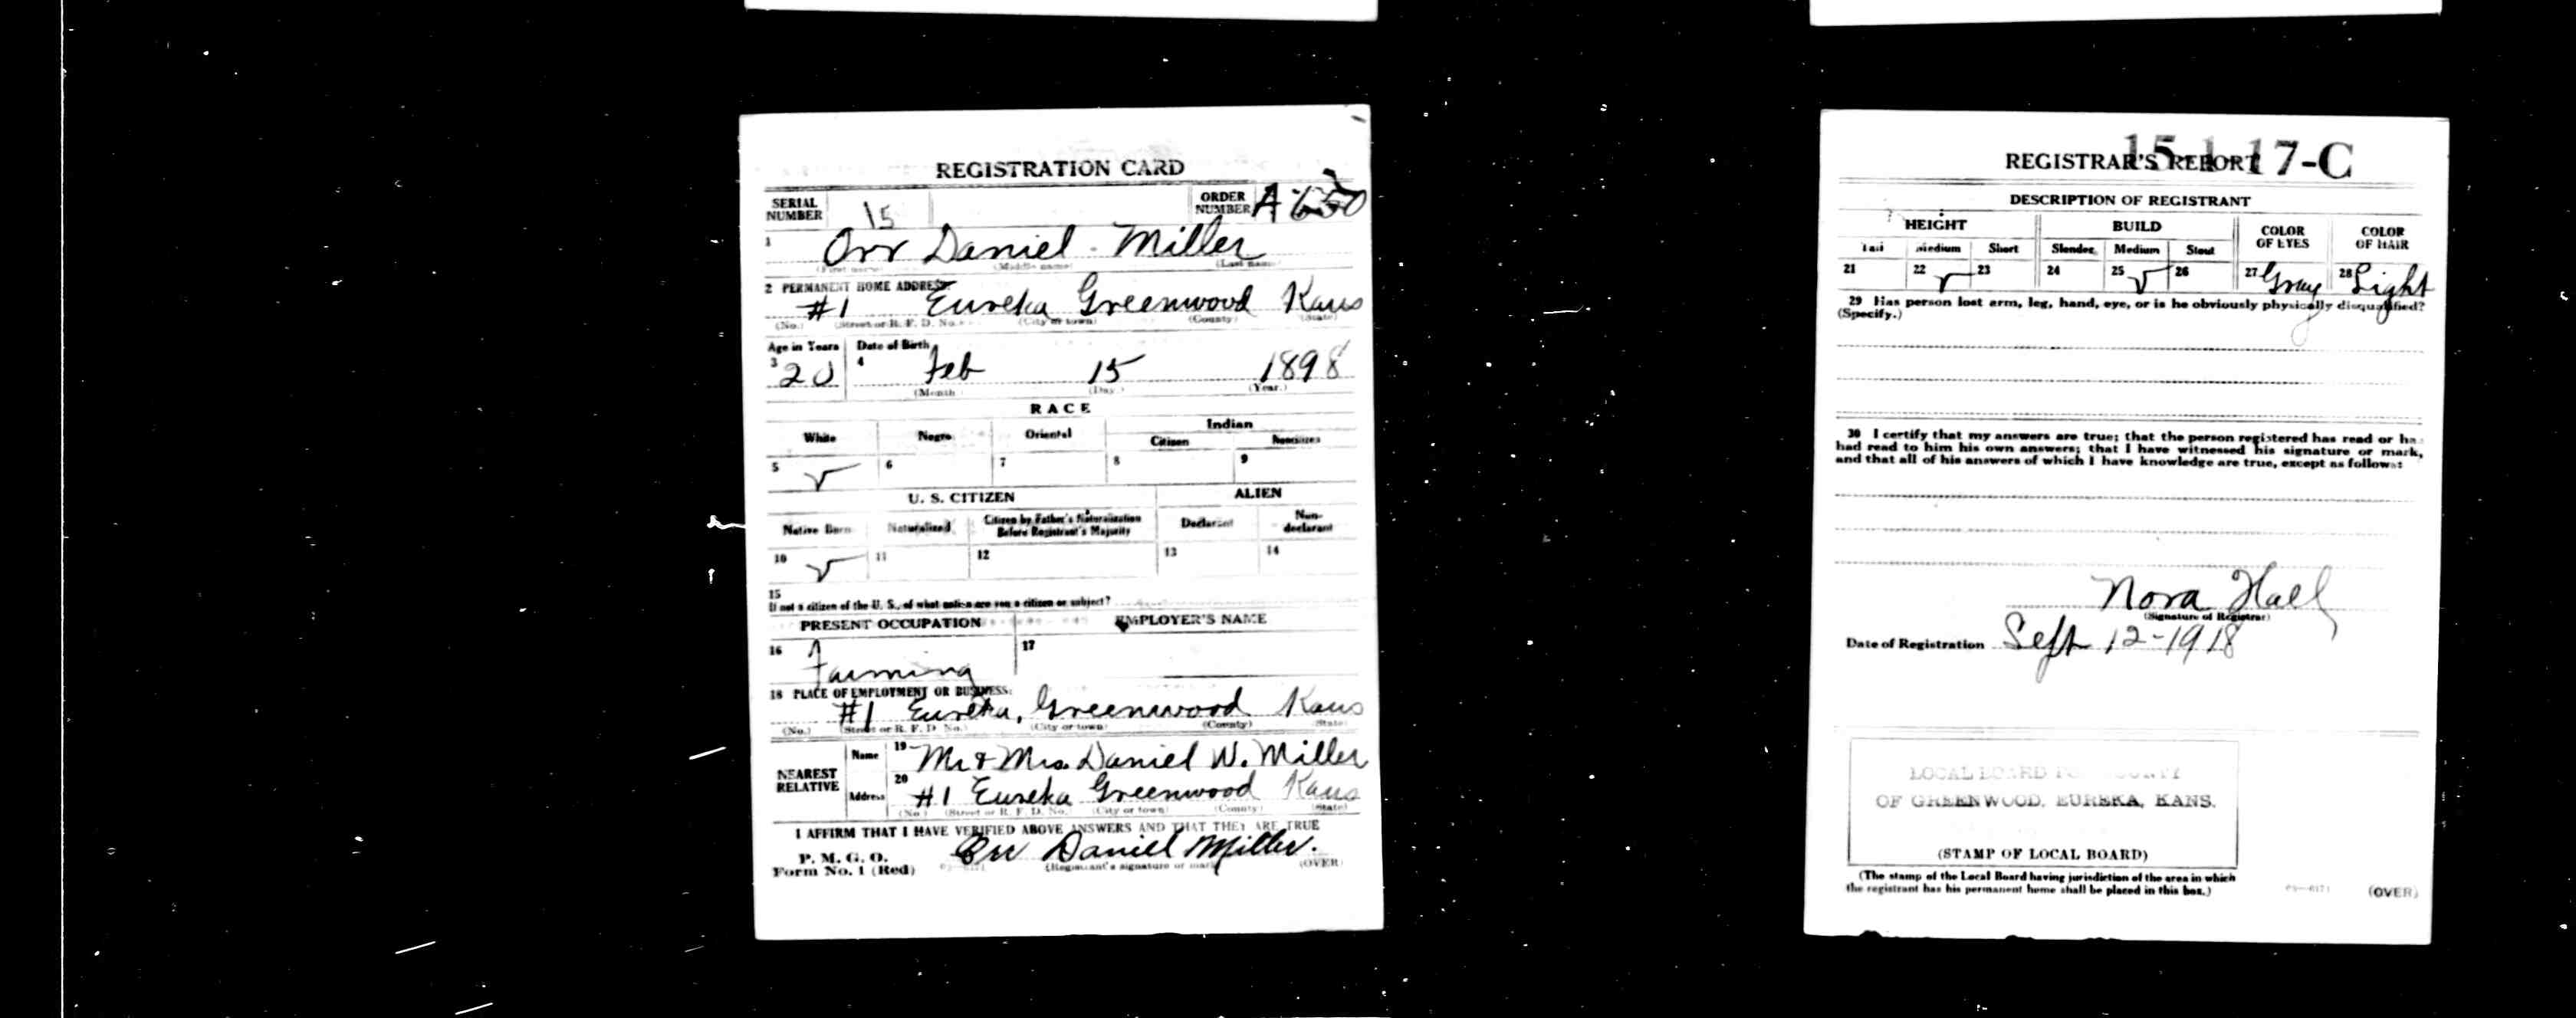 REGISTRATION CARD
SERIAL NUMBER 15 ORDER NUMBER A
1 Orr Daniel Miller
(First name) (Middle name) (Last name)
2 PERMANENT HOME ADDRESS:
#1 Eureka Greenwood Kans
(No.) (Street or R. F. D. No.) (City or town) (County) (State)
Age in Years Date of Birth
3 20 4 Feb 15 1898
(Month) (Day) (Year.)
RACE
White Negro Oriental Indian
Citizen Noncitizen
5 ✓ 6 7 8 9
U. S. CITIZEN ALIEN
Native Born Naturalized Citizen by Father's Naturalization Before Registrant's Majority Declarant Non-declarant
10 ✓ 11 12 13 14
15
If not a citizen of the U. S., of what nation are you a citizen or subject?
PRESENT OCCUPATION EMPLOYER'S NAME
16 Farming 17
18 PLACE OF EMPLOYMENT OR BUSINESS:
#1 Eureka, Greenwood Kans
(No.) (Street or R. F. D. No.) (City or town) (County) (State)
NEAREST RELATIVE Name 19 Mr & Mrs. Daniel W. Miller
Address 20 #1 Eureka Greenwood Kans
(No.) (Street or R. F. D. No.) (City or town) (County) (State)
I AFFIRM THAT I HAVE VERIFIED ABOVE ANSWERS AND THAT THEY ARE TRUE
P. M. G. O.
Form No. 1 (Red) Orr Daniel Miller.
(Registrant's signature or mark) (OVER)
15-1-17-C
REGISTRAR'S REPORT
DESCRIPTION OF REGISTRANT
HEIGHT BUILD COLOR OF EYES COLOR OF HAIR
Tall Medium Short Slender Medium Stout
21 22 ✓ 23 24 25 ✓ 26 27 Gray 28 Light
29 Has person lost arm, leg, hand, eye, or is he obviously physically disqualified?
(Specify.)
30 I certify that my answers are true; that the person registered has read or has
had read to him his own answers; that I have witnessed his signature or mark,
and that all of his answers of which I have knowledge are true, except as follows:
Nora Hall
(Signature of Registrar)
Date of Registration Sept 12-1918
LOCAL BOARD FOR COUNTY
OF GREENWOOD, EUREKA, KANS.
(STAMP OF LOCAL BOARD)
(The stamp of the Local Board having jurisdiction of the area in which
the registrant has his permanent home shall be placed in this box.)
(OVER)